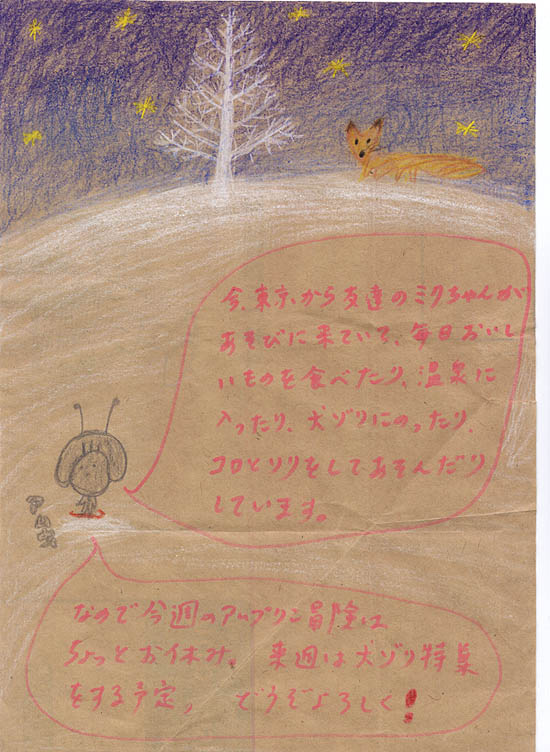 今、東京から友達のミクちゃんが
あそびに来ていて、毎日おいし
いものを食べたり、温泉に
入ったり、犬ゾリにのったり、
コロとソリをしてあそんだり
しています。
なので今週のアップリコ冒険は
ちょっとお休み。来週は犬ゾリ特集
をする予定。どうぞよろしく!